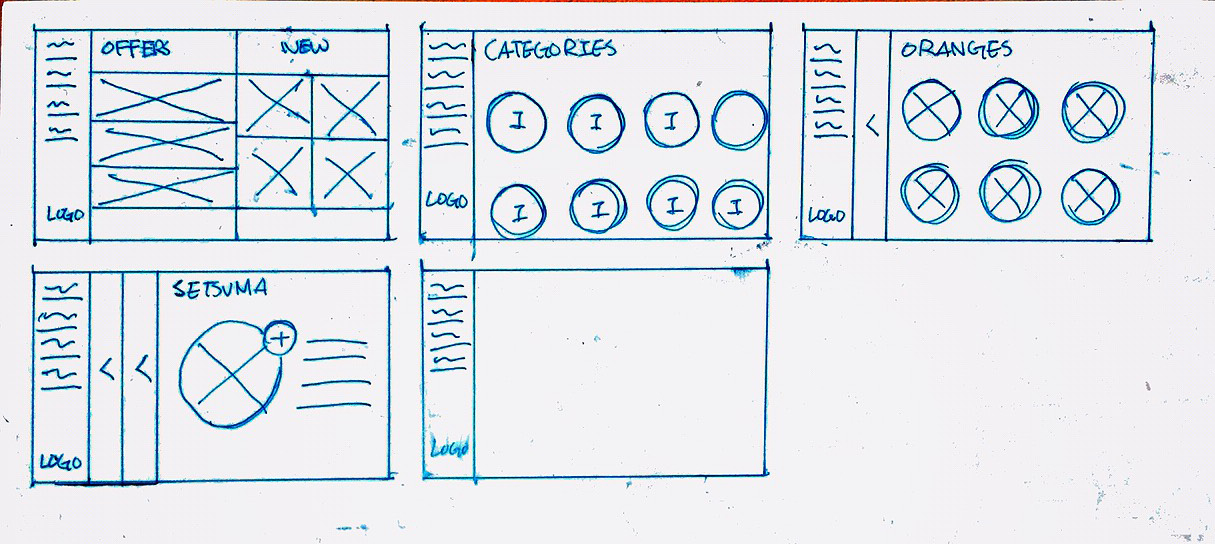 OFFERS
NEW
LOGO
CATEGORIES
I I I
I I I I
LOGO
ORANGES
<
LOGO
SETSUMA
+
< <
LOGO
LOGO